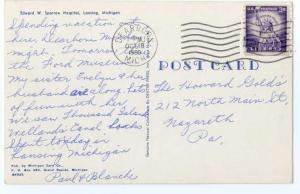 Edward W. Sparrow Hospital, Lansing, Michigan
Spending vacation at
here, Dearborn Mich
night. Tomorrow
the Ford Museum
My sister Evelyn & her
husband are along
of fun with her.
We saw Thousand Island
Wellands Canal, Locks
Spent today in
Lansing Michigan
Paul & Blanche
Pub. by Michigan Card Co.
DEARBORN
OCT 18
1960
MICH.
LIBERTY
POST CARD
The Howard Gold's
212 North Main St.
Nazareth
Pa.